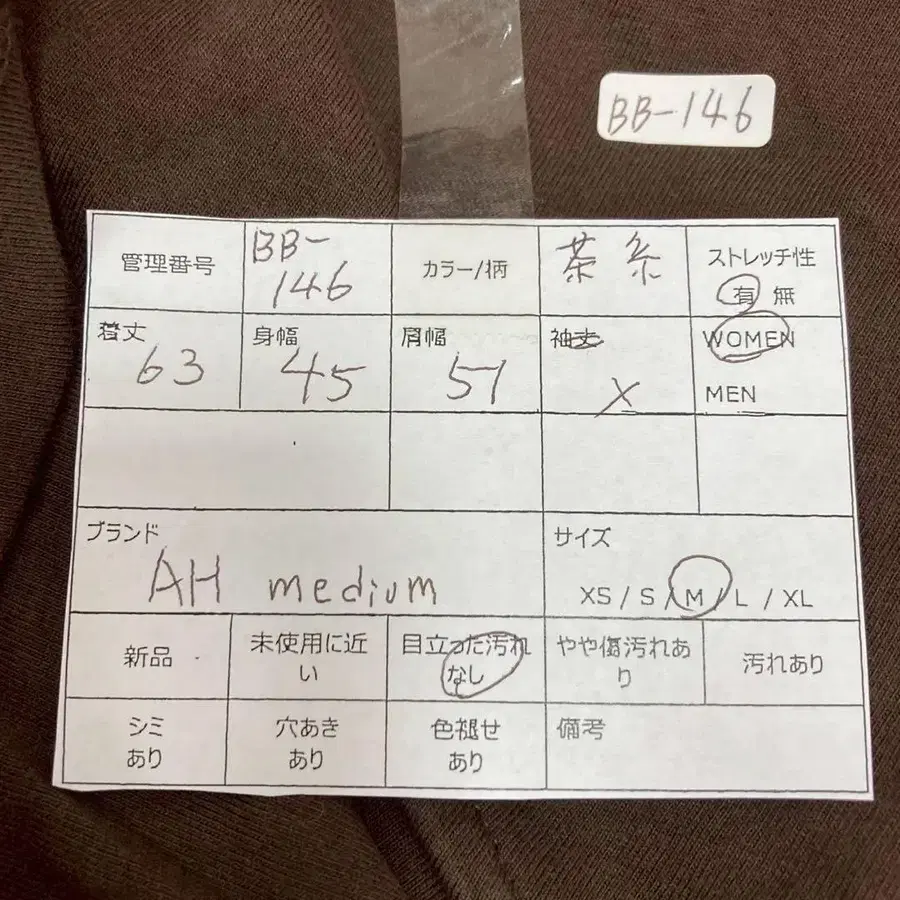 BB-146
管理番号
BB-
146
カラー/柄
茶系
ストレッチ性
有 無
着丈
63
身幅
45
肩幅
51
袖丈
X
WOMEN
MEN
ブランド
AH medium
サイズ
XS / S / M / L / XL
新品
未使用に近
い
目立った汚れ
なし
やや傷汚れあ
り
汚れあり
シミ
あり
穴あき
あり
色褪せ
あり
備考